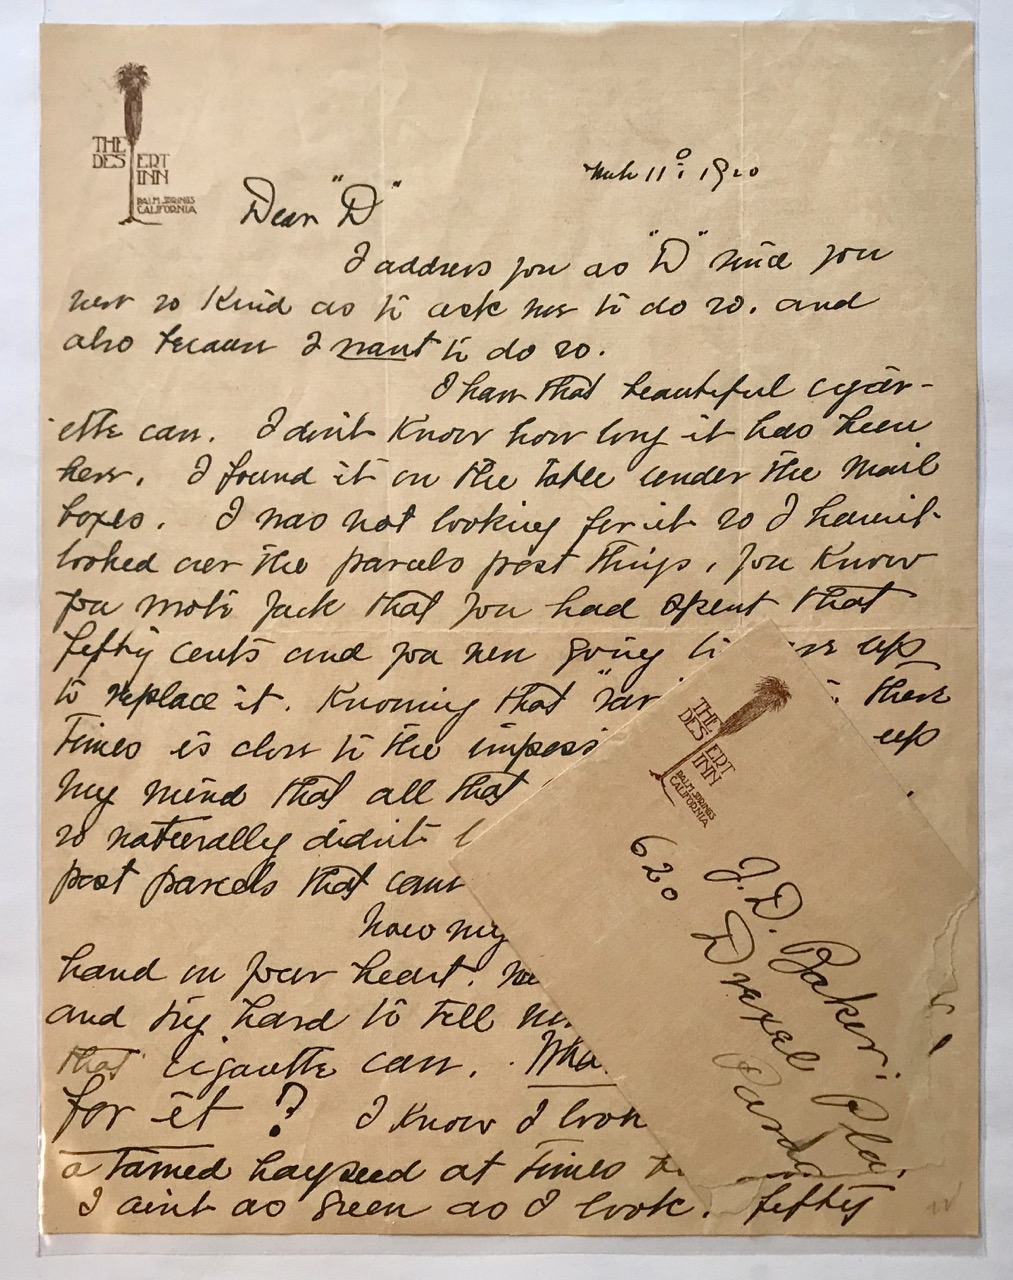 THE
DESERT
INN
PALM SPRINGS
CALIFORNIA
Mch 11° 1920
Dear "D"
I address you as "D" since you
were so kind as to ask me to do so. and
also because I want to do so.
I have that beautiful cigar-
ette case. I don't know how long it has been
here. I found it on the table under the mail
boxes. I was not looking for it so I haven't
looked over the parcels post things, you know
you wrote Jack that you had spent that
fifty cents and you were going to up
to replace it. Knowing that these
times is close to the up
my mind that all that
so naturally didn't
post parcels that came
Now my
hand on your heart.
and try hard to tell
that cigarette case.
for it? I know I look
a tamed hayseed at times
I aint as green as I look. fifty
THE
DESERT
INN
PALM SPRINGS
CALIFORNIA
J. D. Baker:
620 Drexel